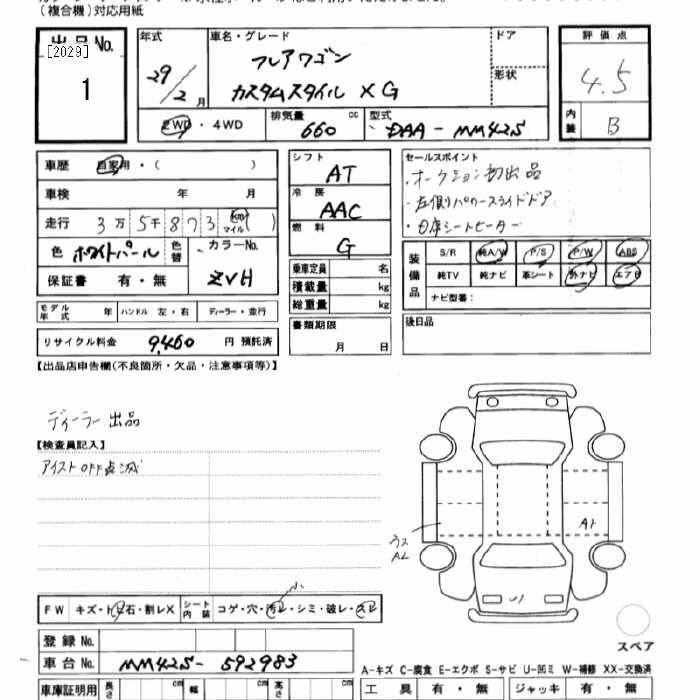 (複合機)対応用紙
出品No.
[2029]
1
年式
29/2月
車名・グレード
フレアワゴン
カスタムスタイル XG
ドア
形状
評価点
4.5
内装
B
2WD・4WD
排気量
660 cc
型式
DAA-MM42S
車歴 自家用・( )
車検 年 月
走行 3万5千873 km マイル ( )
色 ホワイトパール 色替 カラーNo.
ZVH
保証書 有・無
シフト
AT
冷房
AAC
燃料
G
乗車定員 名
積載量 kg
総重量 kg
書類期限
月 日
セールスポイント
・オークション初出品
・左側りパワースライドドア
・自席シートヒーター
装備品
S/R 純A/W P/S P/W ABS
純TV 純ナビ 革シート 外ナビ エアB
ナビ型番:
後日品
モデル年式 年 ハンドル 左・右 ディーラー・並行
リサイクル料金 9,460 円 預託済
【出品店申告欄(不良箇所・欠品・注意事項等)】
ディーラー出品
【検査員記入】
アイストOFF点滅
ウス
A2
A1
U1
FW キズ・トビ石・割レX シート内装 コゲ・穴・汚レ・シミ・破レ・スレ
小
登録No.
車台No. MM42S-592983
スペア
A-キズ C-腐食 E-エクボ S-サビ U-凹ミ W-補修 XX-交換済
車庫証明用 長さ cm 幅 cm 高さ cm
工具 有・無 ジャッキ 有・無